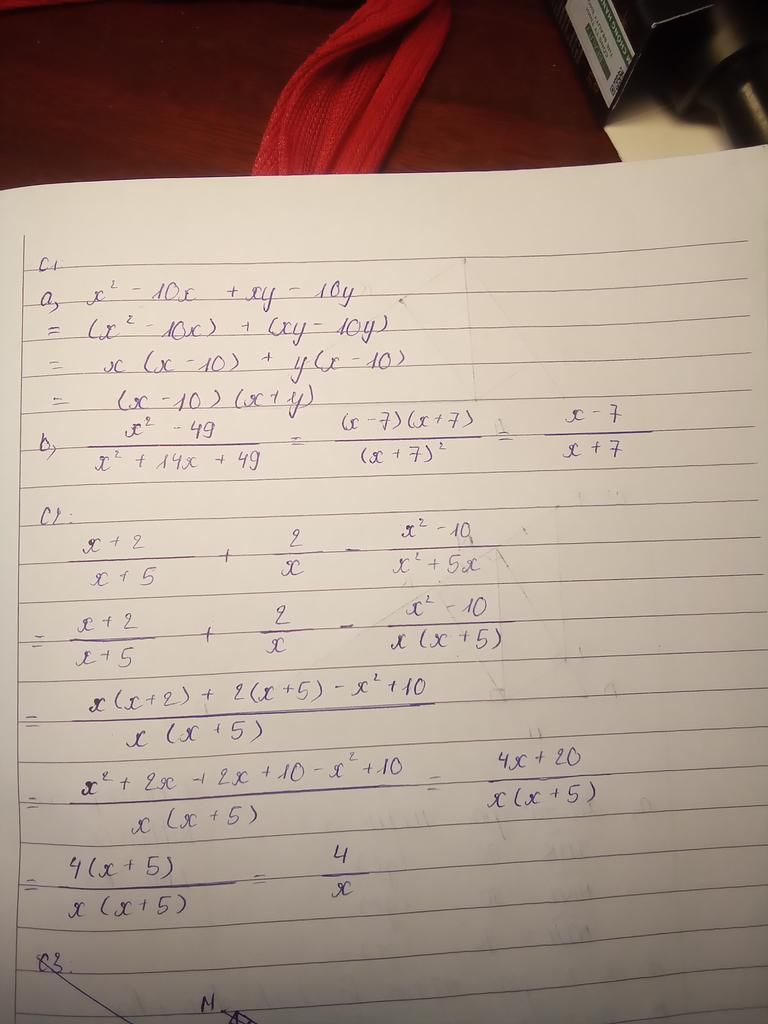 C1
a, x² - 10x + xy - 10y
= (x² - 10x) + (xy - 10y)
= x (x - 10) + y(x - 10)
= (x - 10) (x + y)
b, (x² - 49)/(x² + 14x + 49) = ((x - 7)(x + 7))/((x + 7)²) = (x - 7)/(x + 7)
C2:
(x + 2)/(x + 5) + 2/x - (x² - 10)/(x² + 5x)
= (x + 2)/(x + 5) + 2/x - (x² - 10)/(x (x + 5))
= (x(x + 2) + 2(x + 5) - x² + 10)/(x (x + 5))
= (x² + 2x + 2x + 10 - x² + 10)/(x (x + 5)) = (4x + 20)/(x(x + 5))
= (4(x + 5))/(x (x + 5)) = 4/x
C3.
M